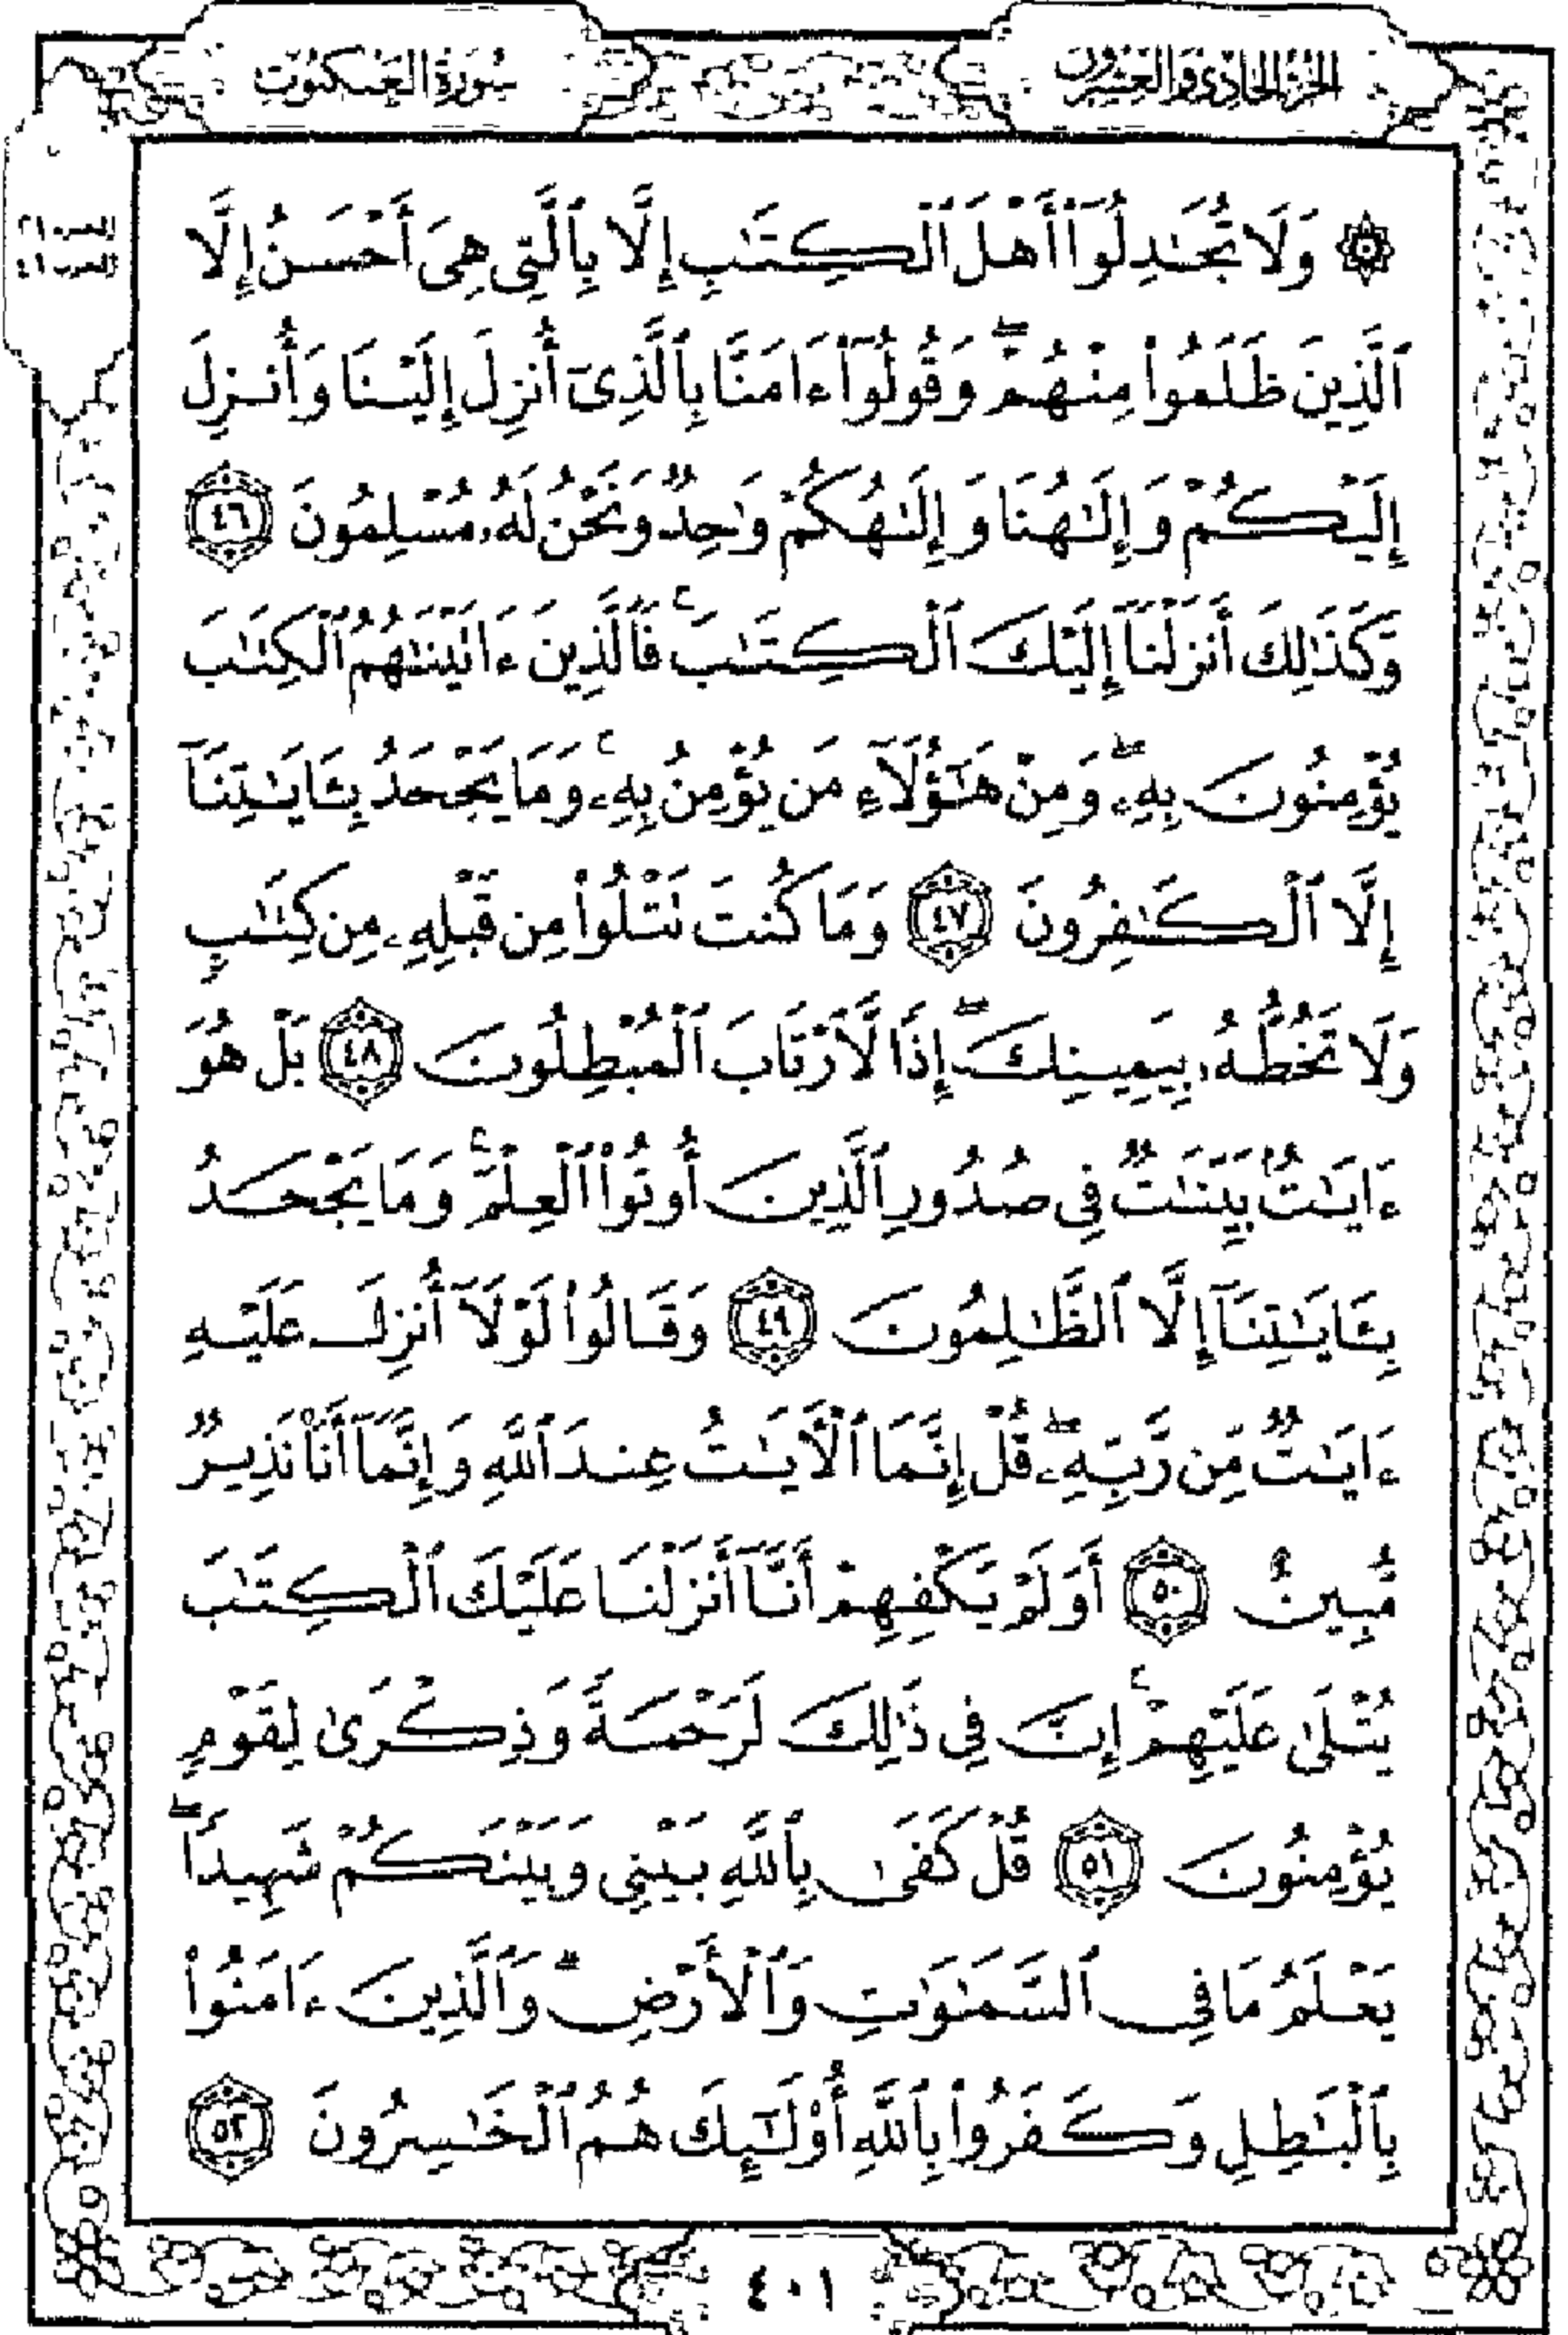 الجزء الحادي والعشرون
سورة العنكبوت
۞ وَلَا تُجَٰدِلُوٓا۟ أَهْلَ ٱلْكِتَٰبِ إِلَّا بِٱلَّتِى هِىَ أَحْسَنُ إِلَّا
ٱلَّذِينَ ظَلَمُوا۟ مِنْهُمْ ۖ وَقُولُوٓا۟ ءَامَنَّا بِٱلَّذِىٓ أُنزِلَ إِلَيْنَا وَأُنزِلَ
إِلَيْكُمْ وَإِلَٰهُنَا وَإِلَٰهُكُمْ وَٰحِدٌ وَنَحْنُ لَهُۥ مُسْلِمُونَ ٤٦
وَكَذَٰلِكَ أَنزَلْنَآ إِلَيْكَ ٱلْكِتَٰبَ ۚ فَٱلَّذِينَ ءَاتَيْنَٰهُمُ ٱلْكِتَٰبَ
يُؤْمِنُونَ بِهِۦ ۖ وَمِنْ هَٰٓؤُلَآءِ مَن يُؤْمِنُ بِهِۦ ۚ وَمَا يَجْحَدُ بِـَٔايَٰتِنَآ
إِلَّا ٱلْكَٰفِرُونَ ٤٧ وَمَا كُنتَ تَتْلُوا۟ مِن قَبْلِهِۦ مِن كِتَٰبٍ
وَلَا تَخُطُّهُۥ بِيَمِينِكَ ۖ إِذًا لَّٱرْتَابَ ٱلْمُبْطِلُونَ ٤٨ بَلْ هُوَ
ءَايَٰتٌۢ بَيِّنَٰتٌ فِى صُدُورِ ٱلَّذِينَ أُوتُوا۟ ٱلْعِلْمَ ۚ وَمَا يَجْحَدُ
بِـَٔايَٰتِنَآ إِلَّا ٱلظَّٰلِمُونَ ٤٩ وَقَالُوا۟ لَوْلَآ أُنزِلَ عَلَيْهِ
ءَايَٰتٌ مِّن رَّبِّهِۦ ۖ قُلْ إِنَّمَا ٱلْأَيَٰتُ عِندَ ٱللَّهِ وَإِنَّمَآ أَنَا۠ نَذِيرٌ
مُّبِينٌ ٥٠ أَوَلَمْ يَكْفِهِمْ أَنَّآ أَنزَلْنَا عَلَيْكَ ٱلْكِتَٰبَ
يُتْلَىٰ عَلَيْهِمْ ۚ إِنَّ فِى ذَٰلِكَ لَرَحْمَةً وَذِكْرَىٰ لِقَوْمٍ
يُؤْمِنُونَ ٥١ قُلْ كَفَىٰ بِٱللَّهِ بَيْنِى وَبَيْنَكُمْ شَهِيدًا ۖ
يَعْلَمُ مَا فِى ٱلسَّمَٰوَٰتِ وَٱلْأَرْضِ ۗ وَٱلَّذِينَ ءَامَنُوا۟
بِٱلْبَٰطِلِ وَكَفَرُوا۟ بِٱللَّهِ أُو۟لَٰٓئِكَ هُمُ ٱلْخَٰسِرُونَ ٥٢
٤٠١